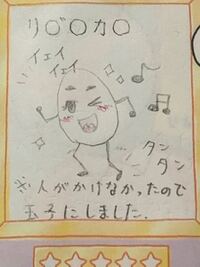 り○゛○カ○
イェイ
イェイ
タン
タン
※人がかけなかったので
玉子にしました.